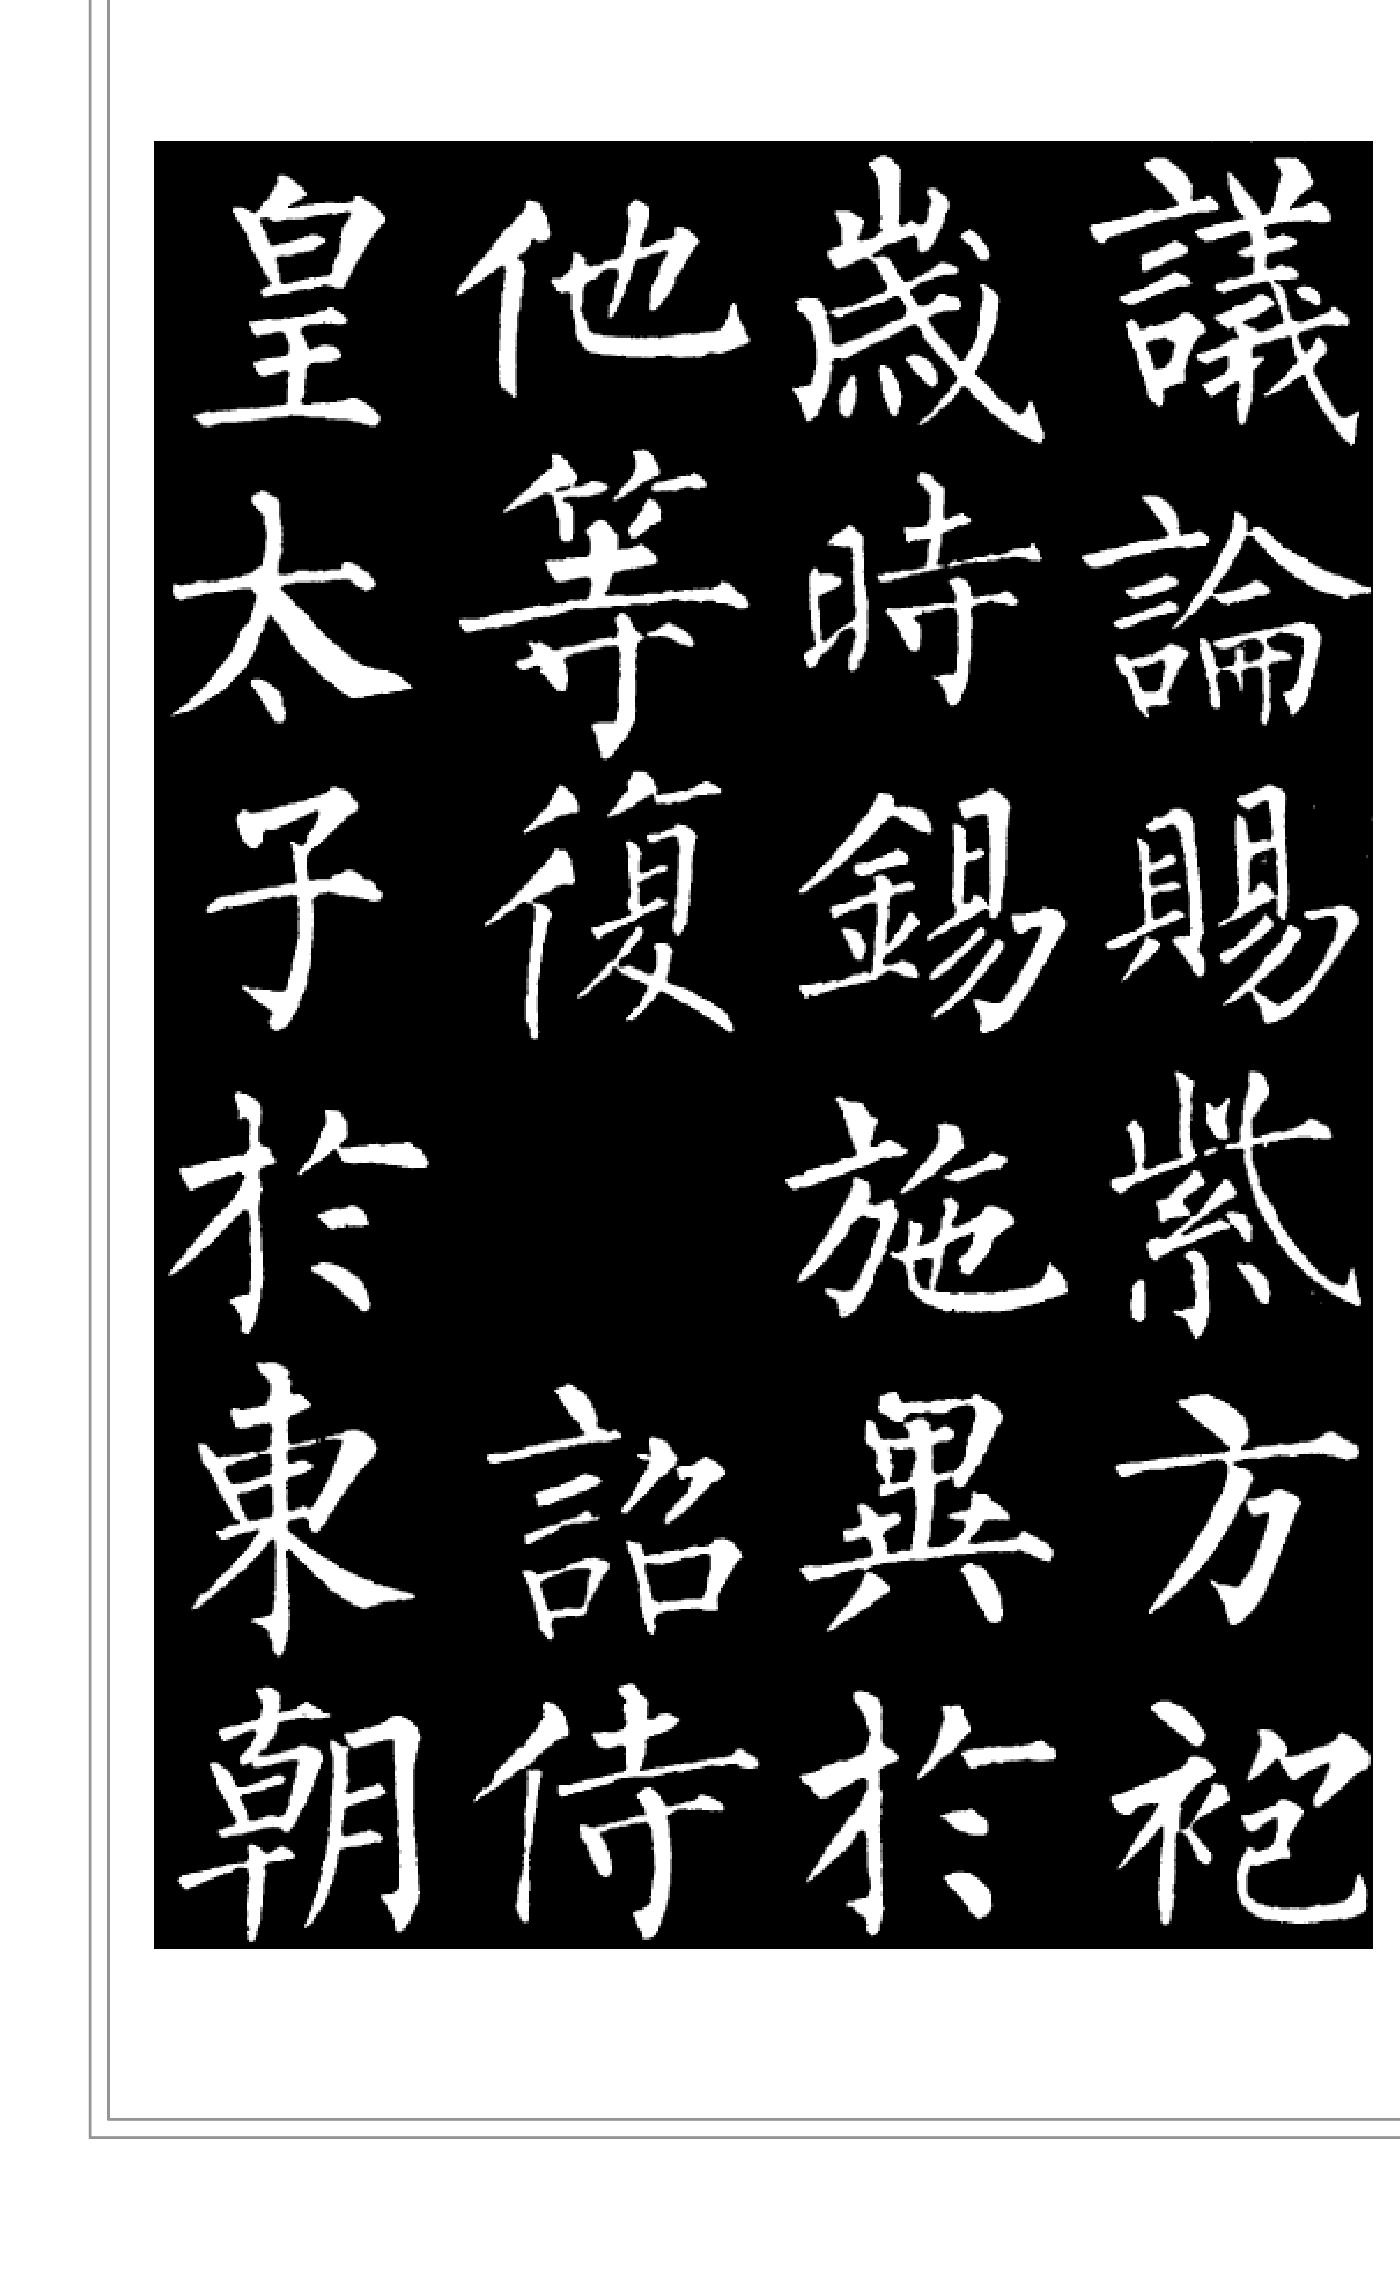 議論賜紫方袍
歲時錫施異於
他等復 詔侍
皇太子於東朝